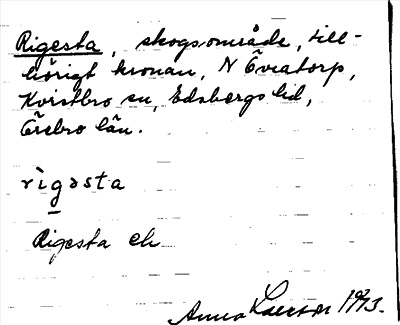 Rigesta, skogsområde, till-
hörigt kronan, N Öviatorp,
Kvistbro sn, Edsbergs hd,
Örebro län.
rìgəsta
Rigesta ek
Anna Larsson 1943.